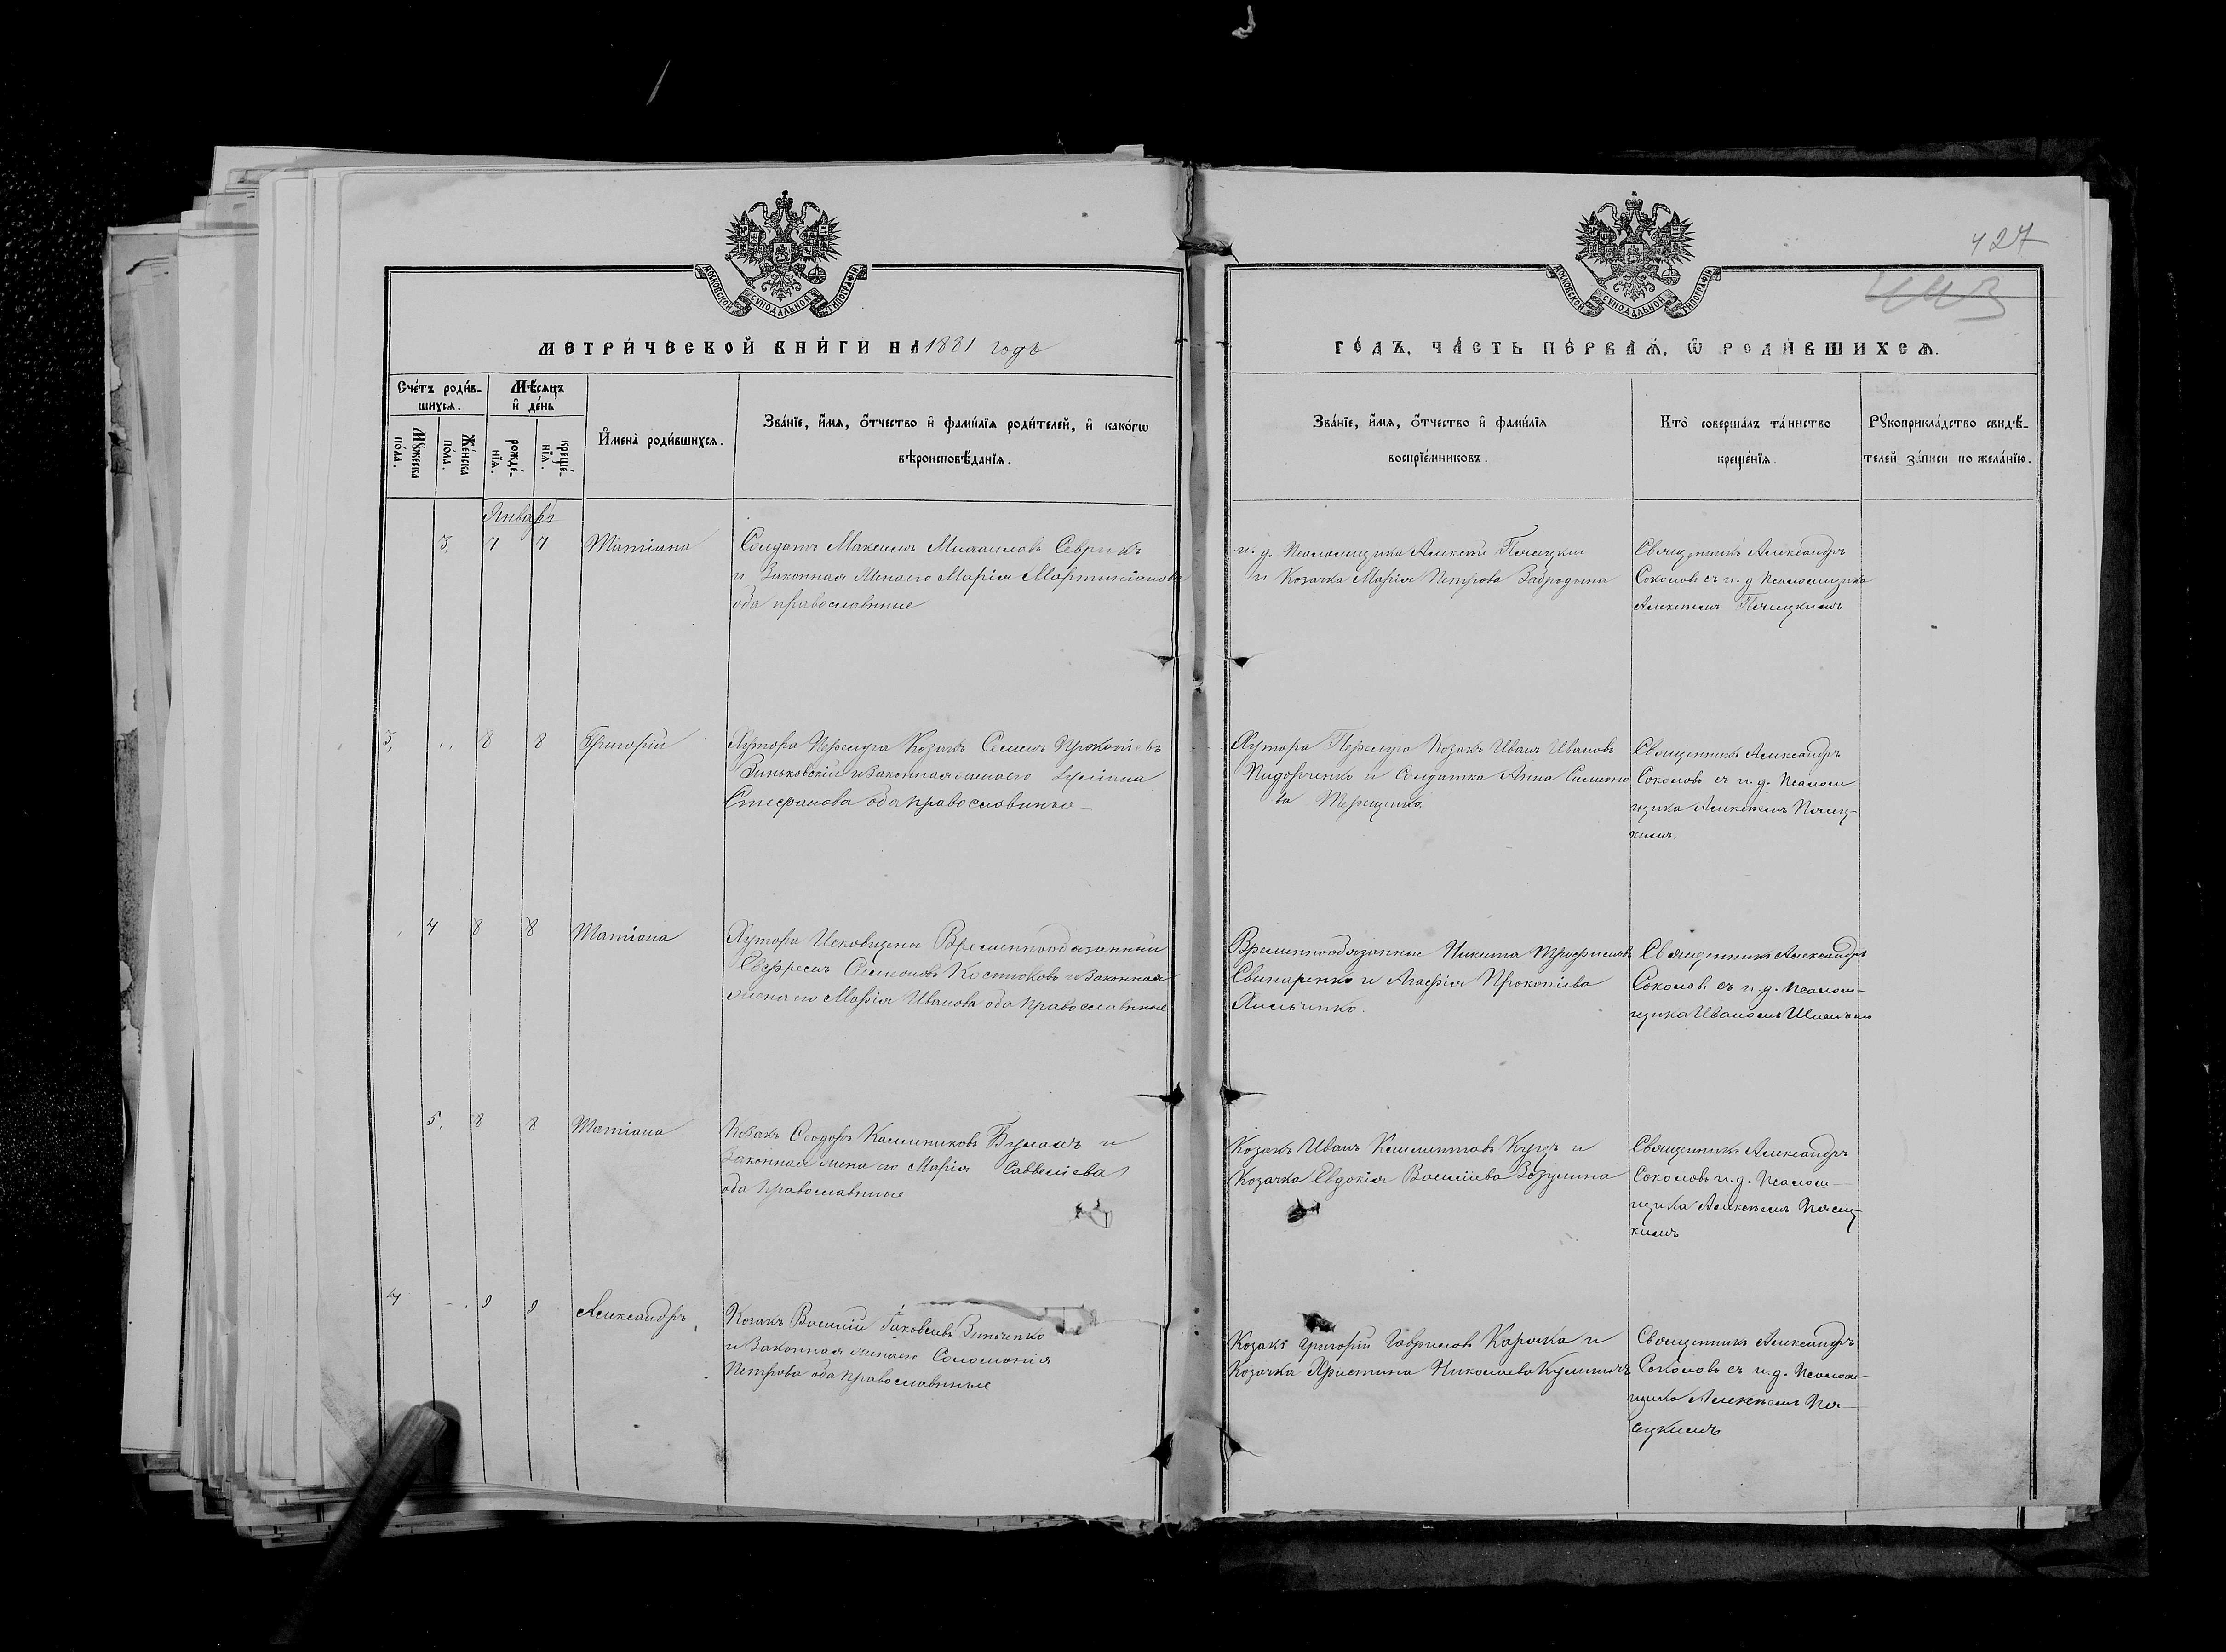 427
МОСКОВСКОЙ СѴНОДАЛЬНОЙ ТИПОГРАФІИ
МОСКОВСКОЙ СѴНОДАЛЬНОЙ ТИПОГРАФІИ
МЕТРИ́ЧЕСКОЙ КНИ́ГИ НА 1881 годъ
ГО́ДЪ, ЧА́СТЬ ПЕ́РВАѦ, Ѿ РОДИ́ВШИХСѦ.
Сче́тъ роди́в-
шихсѧ.
Мꙋ́жеска по́ла.
Же́нска по́ла.
Мѣ́сѧцъ
и҆ де́нь
рожде́-нїѧ.
креще́-нїѧ.
И҆мена̀ роди́вшихсѧ.
Зва́нїе, и҆́мѧ, ѻ҆́тчество и҆ фами́лїѧ роди́телей, и҆ како́гѡ
вѣроисповѣ́данїѧ.
Зва́нїе, и҆́мѧ, ѻ҆́тчество и҆ фами́лїѧ
воспрїе́мниковъ.
Кто̀ соверша́лъ та́инство
креще́нїѧ.
Рꙋкоприкла́дство свидѣ́-
телей за́писи по жела́нїю.
Январь
3, 7 7 Татіана
Солдатъ Максимъ Михаиловъ Севрикъ
и Законная Жена его Марія Мартиніанова
оба православные
и. д. Псаломщика Алексѣй Пясецкій
и Козачка Марія Петрова Забродина
Священникъ Александръ
Соколовъ съ и. д Псаломщика
Алексѣемъ Пясецкимъ
3, 8 8 Григорій
Хутора Перелуга Козакъ Семенъ Прокопіевъ
Зиньковскій и Законная жена его Іуліана
Стефанова оба православные
Хутора Перелуга Козакъ Иванъ Ивановъ
Пидорченко и Солдатка Анна Симоно
ва Терещенко.
Священникъ Александръ
Соколовъ съ и. д. Псалом-
щика Алексѣемъ Пясец-
кимъ.
4 8 8 Татіана
Хутора Исковщена Временнообязанный
Евфремъ Симоновъ Костюковъ и Законная
жена его Марія Иванова оба православные
Временнообязанные Никита Трофимовъ
Свинаренко и Агафія Прокопіева
Священникъ Александръ
Соколовъ съ и. д. Псалом-
щика Иваномъ
5, 8 8 Татіана
Козакъ Ѳеодоръ Каллиниковъ и
Законная жена его Марія Савельева
оба православные
Козакъ Иванъ Климентовъ и
Козачка Евдокія Василіева
Священникъ Александръ
Соколовъ и. д. Псалом-
щика Алексѣемъ Пясец-
кимъ
4 9 9 Александръ
Козакъ Василій Іаковлевъ Зинченко
и Законная жена его Соломонія
Петрова оба православные
Козакъ Григорій Гавриловъ и
Козачка Христина Николаева
Священникъ Александръ
Соколовъ съ и. д. Псалом-
щика Алексѣемъ Пя-
сецкимъ